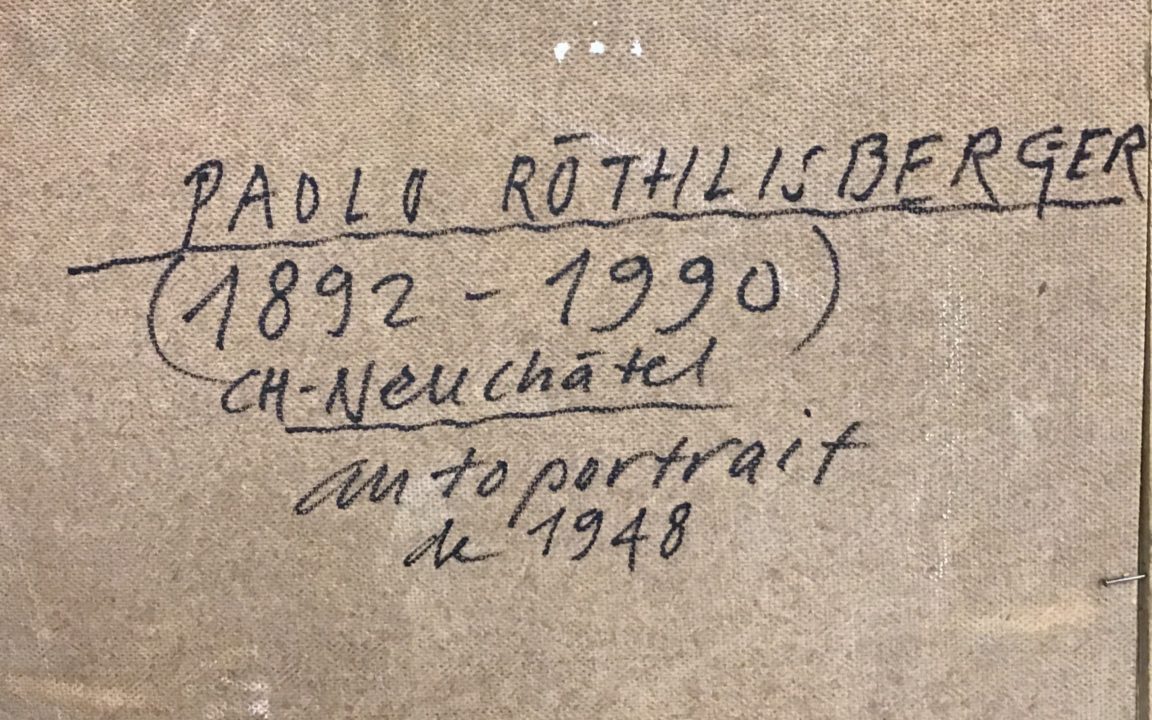 PAOLO RÖTHLISBERGER
(1892 - 1990)
CH-Neuchâtel
autoportrait
de 1948